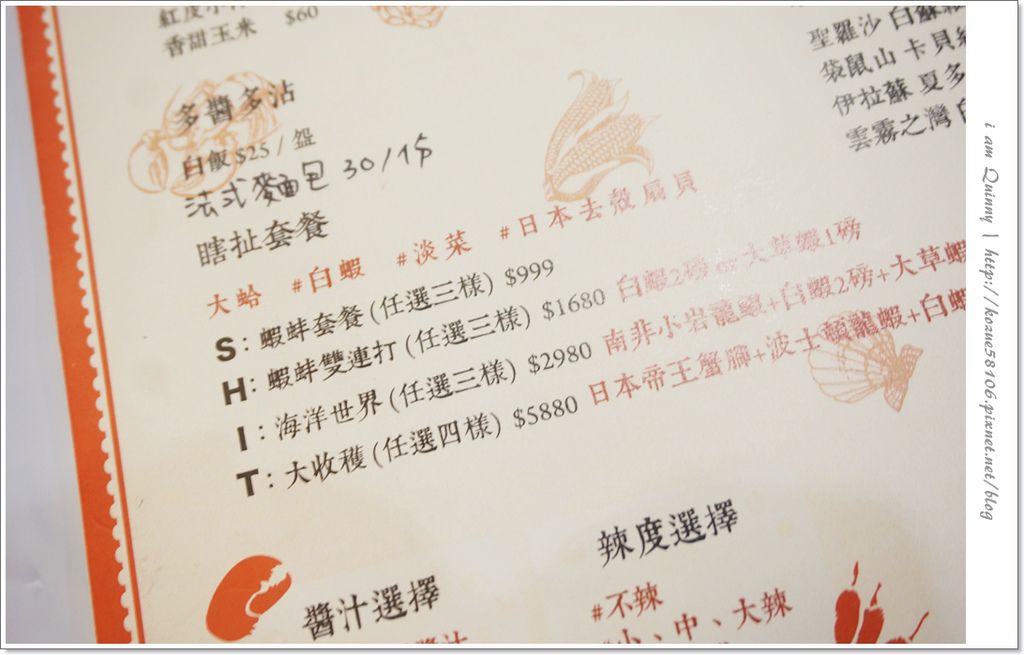 香甜玉米 $60
多醬多沾
白飯 $25 / 盌
法式麵包 30/1份
瞎扯套餐
大蛤 #白蝦 #淡菜 #日本去殼扇貝
S: 蝦蚌套餐(任選三樣) $999
H: 蝦蚌雙連打(任選三樣) $1680 白蝦2磅 or 大草蝦1磅
I: 海洋世界(任選三樣) $2980 南非小岩龍蝦+白蝦2磅+大草蝦
T: 大收穫(任選四樣) $5880 日本帝王蟹腳+波士頓龍蝦+白蝦
聖羅沙 白蘇
袋鼠山 卡貝
伊拉蘇 夏多
雲霧之灣
醬汁選擇
辣度選擇
#不辣
小、中、大辣
i am Quinny | http://kozue58106.pixnet.net/blog